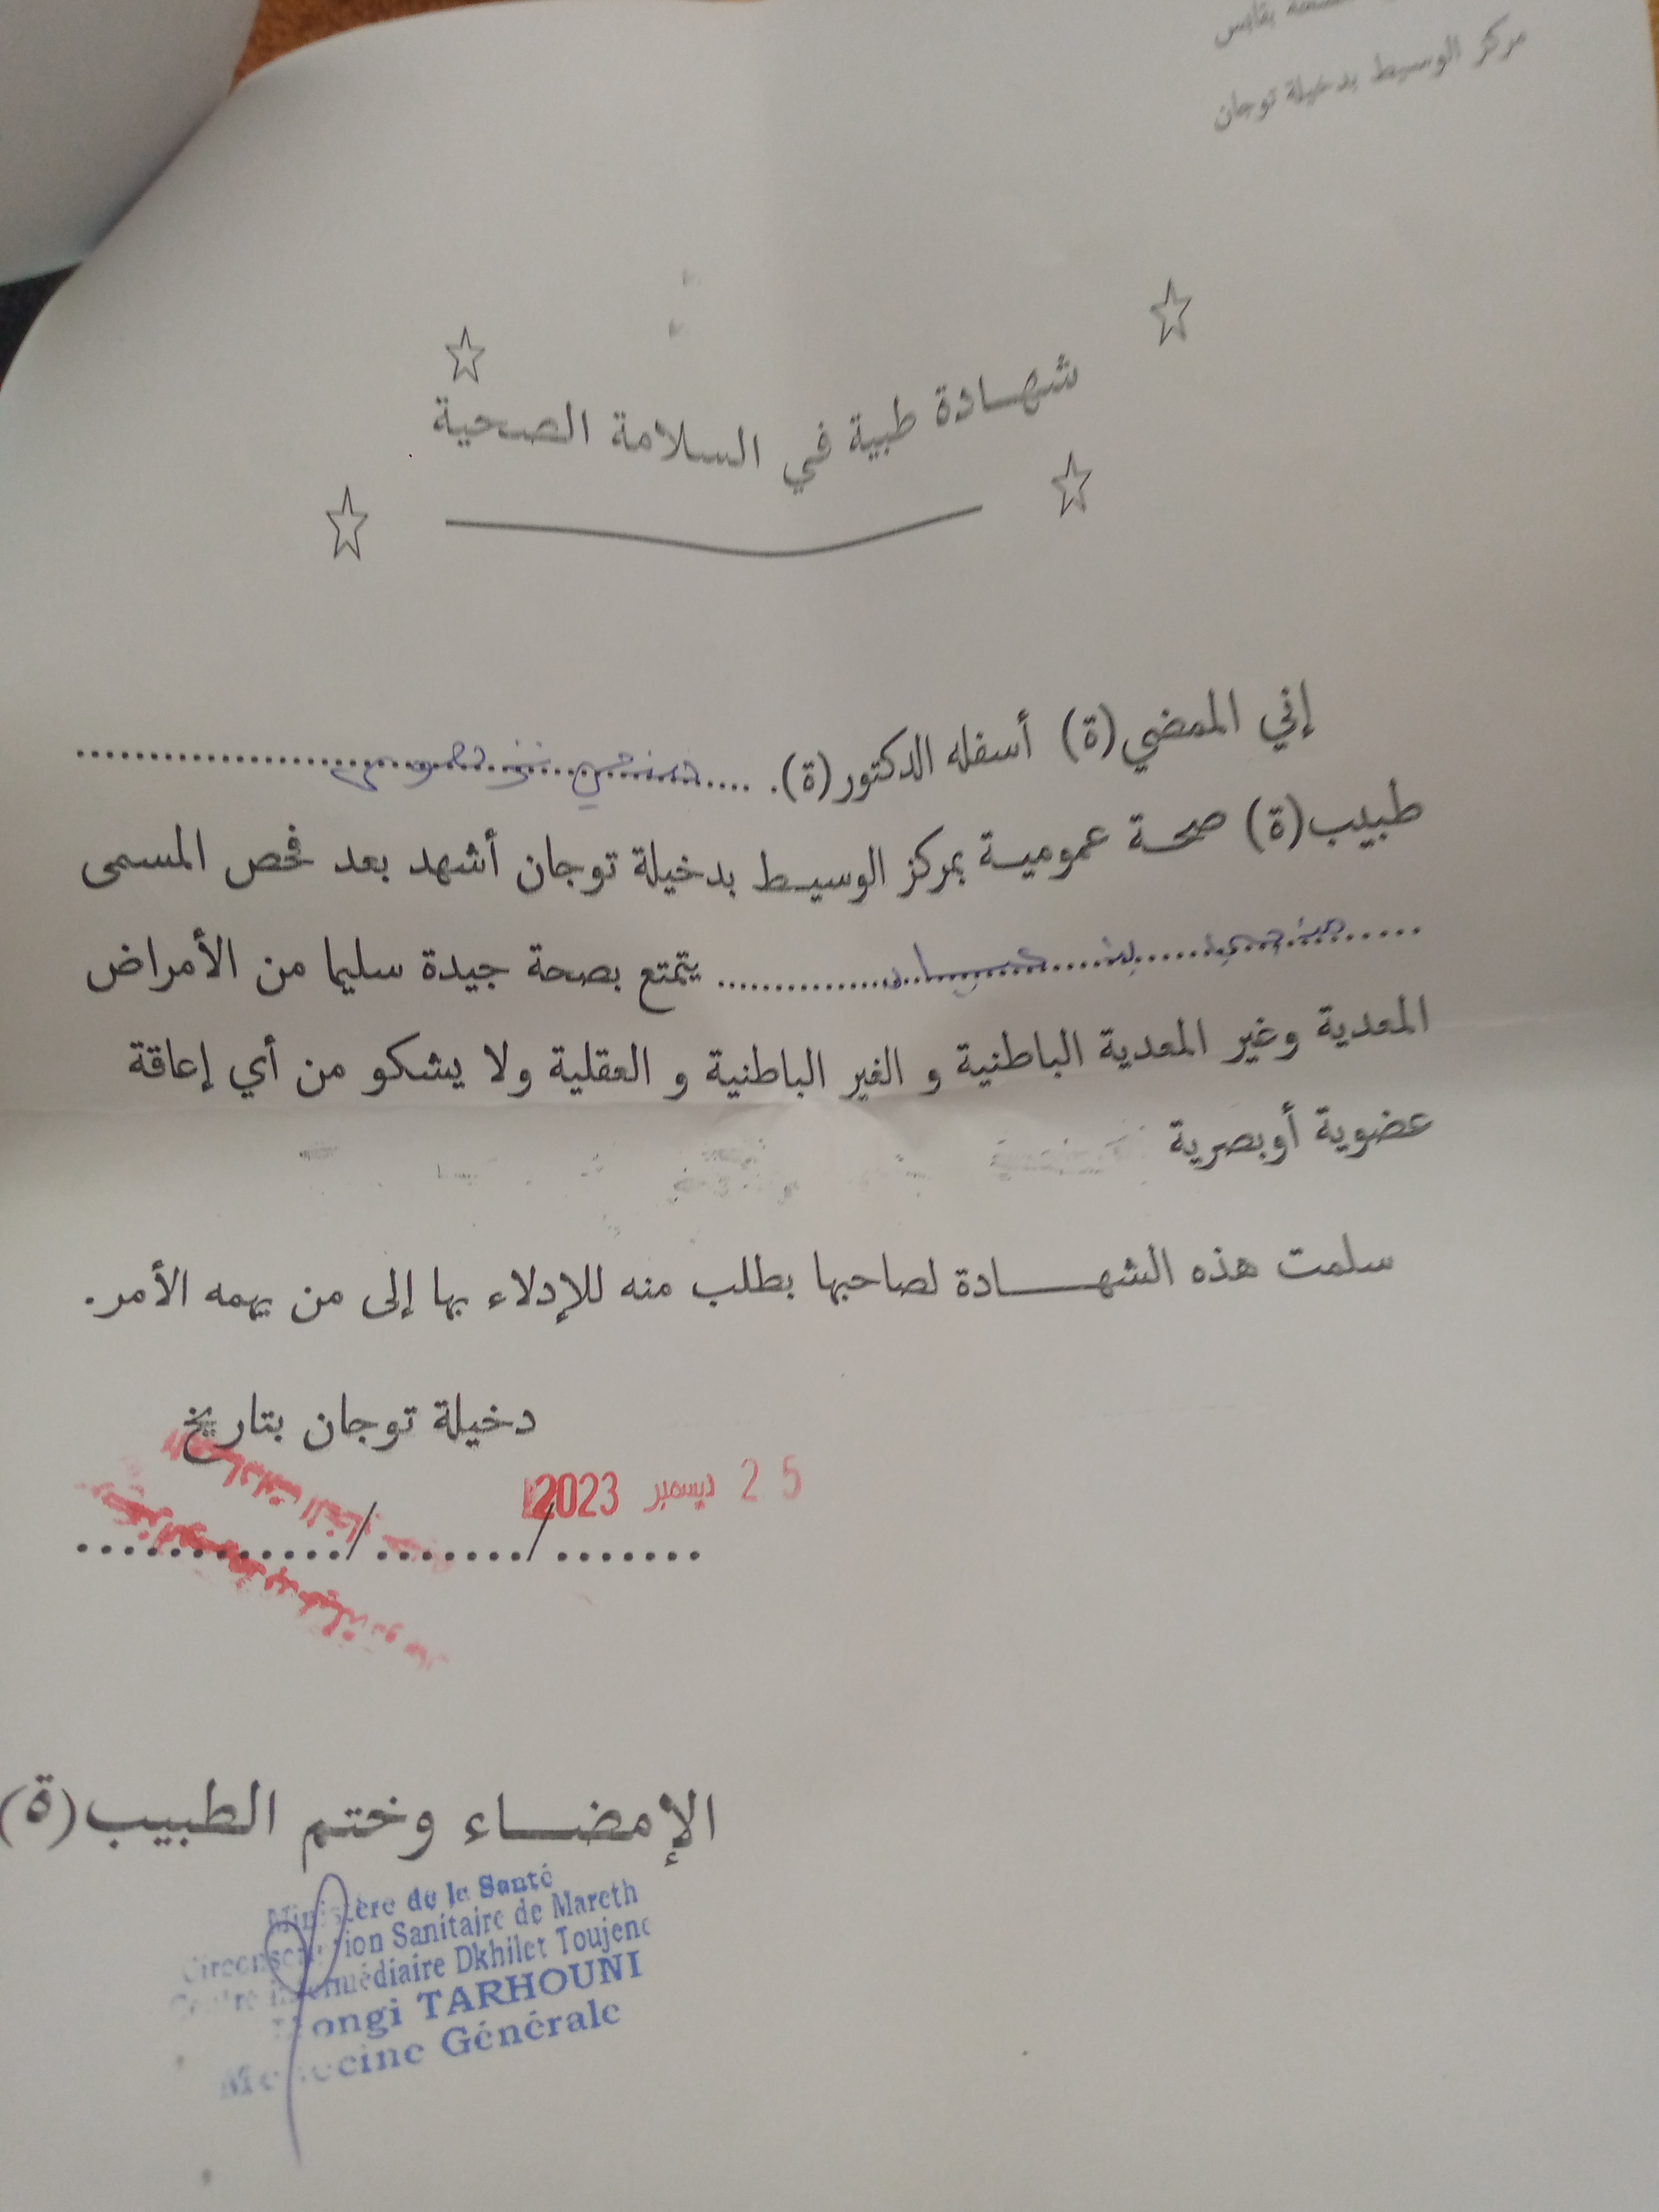 بقابس
مركز الوسيط بدخيلة توجان
شهادة طبية في السلامة الصحية
إني الممضي(ة) أسفله الدكتور(ة). ....
طبيب(ة) صحة عمومية بمركز الوسيط بدخيلة توجان أشهد بعد فحص المسمى
يتمتع بصحة جيدة سليما من الأمراض
المعدية وغير المعدية الباطنية و الغير الباطنية و العقلية ولا يشكو من أي إعاقة
عضوية أوبصرية
سلمت هذه الشهادة لصاحبها بطلب منه للإدلاء بها إلى من يهمه الأمر.
دخيلة توجان بتاريخ
25 ديسمبر 2023
....../......./............
الإمضاء وختم الطبيب(ة)
Ministère de la Santé
Circonscription Sanitaire de Mareth
Centre intermédiaire Dkhilet Toujene
TARHOUNI
Médecine Générale